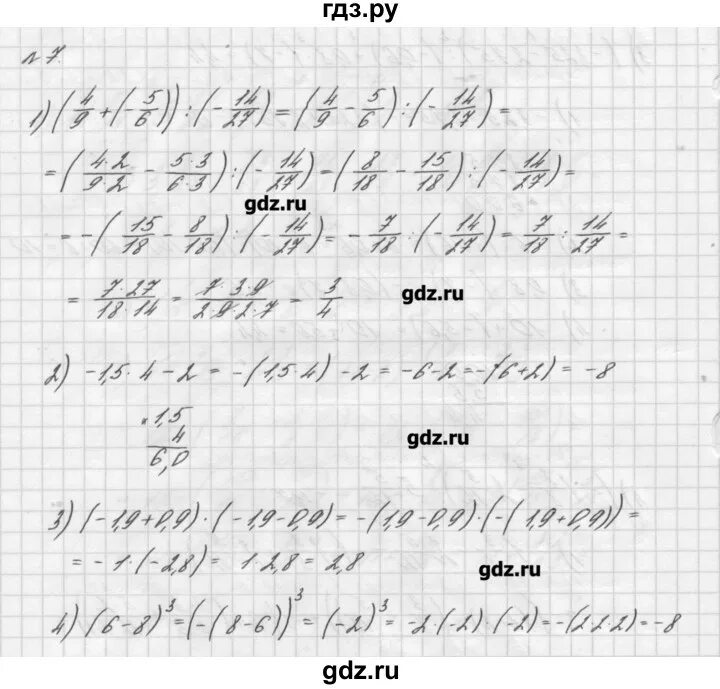 гдз.ру
№ 7.
1) (4/9 + (-5/6)) : (-14/27) = (4/9 - 5/6) : (-14/27) =
= (4·2/9·2 - 5·3/6·3) : (-14/27) = (8/18 - 15/18) : (-14/27) =
gdz.ru
= -(15/18 - 8/18) : (-14/27) = -7/18 : (-14/27) = 7/18 : 14/27 =
= 7·27/18·14 = 7·3·9/2·9·2·7 = 3/4
gdz.ru
2) -1,5·4-2 = -(1,5·4)-2 = -6-2 = -(6+2) = -8
× 1,5
4
6,0
gdz.ru
3) (-1,9+0,9)·(-1,9-0,9) = -(1,9-0,9)·(-(1,9+0,9)) =
= -1·(-2,8) = 1·2,8 = 2,8
gdz.ru
4) (6-8)³ = (-(8-6))³ = (-2)³ = -2·(-2)·(-2) = -(2·2·2) = -8
gdz.ru